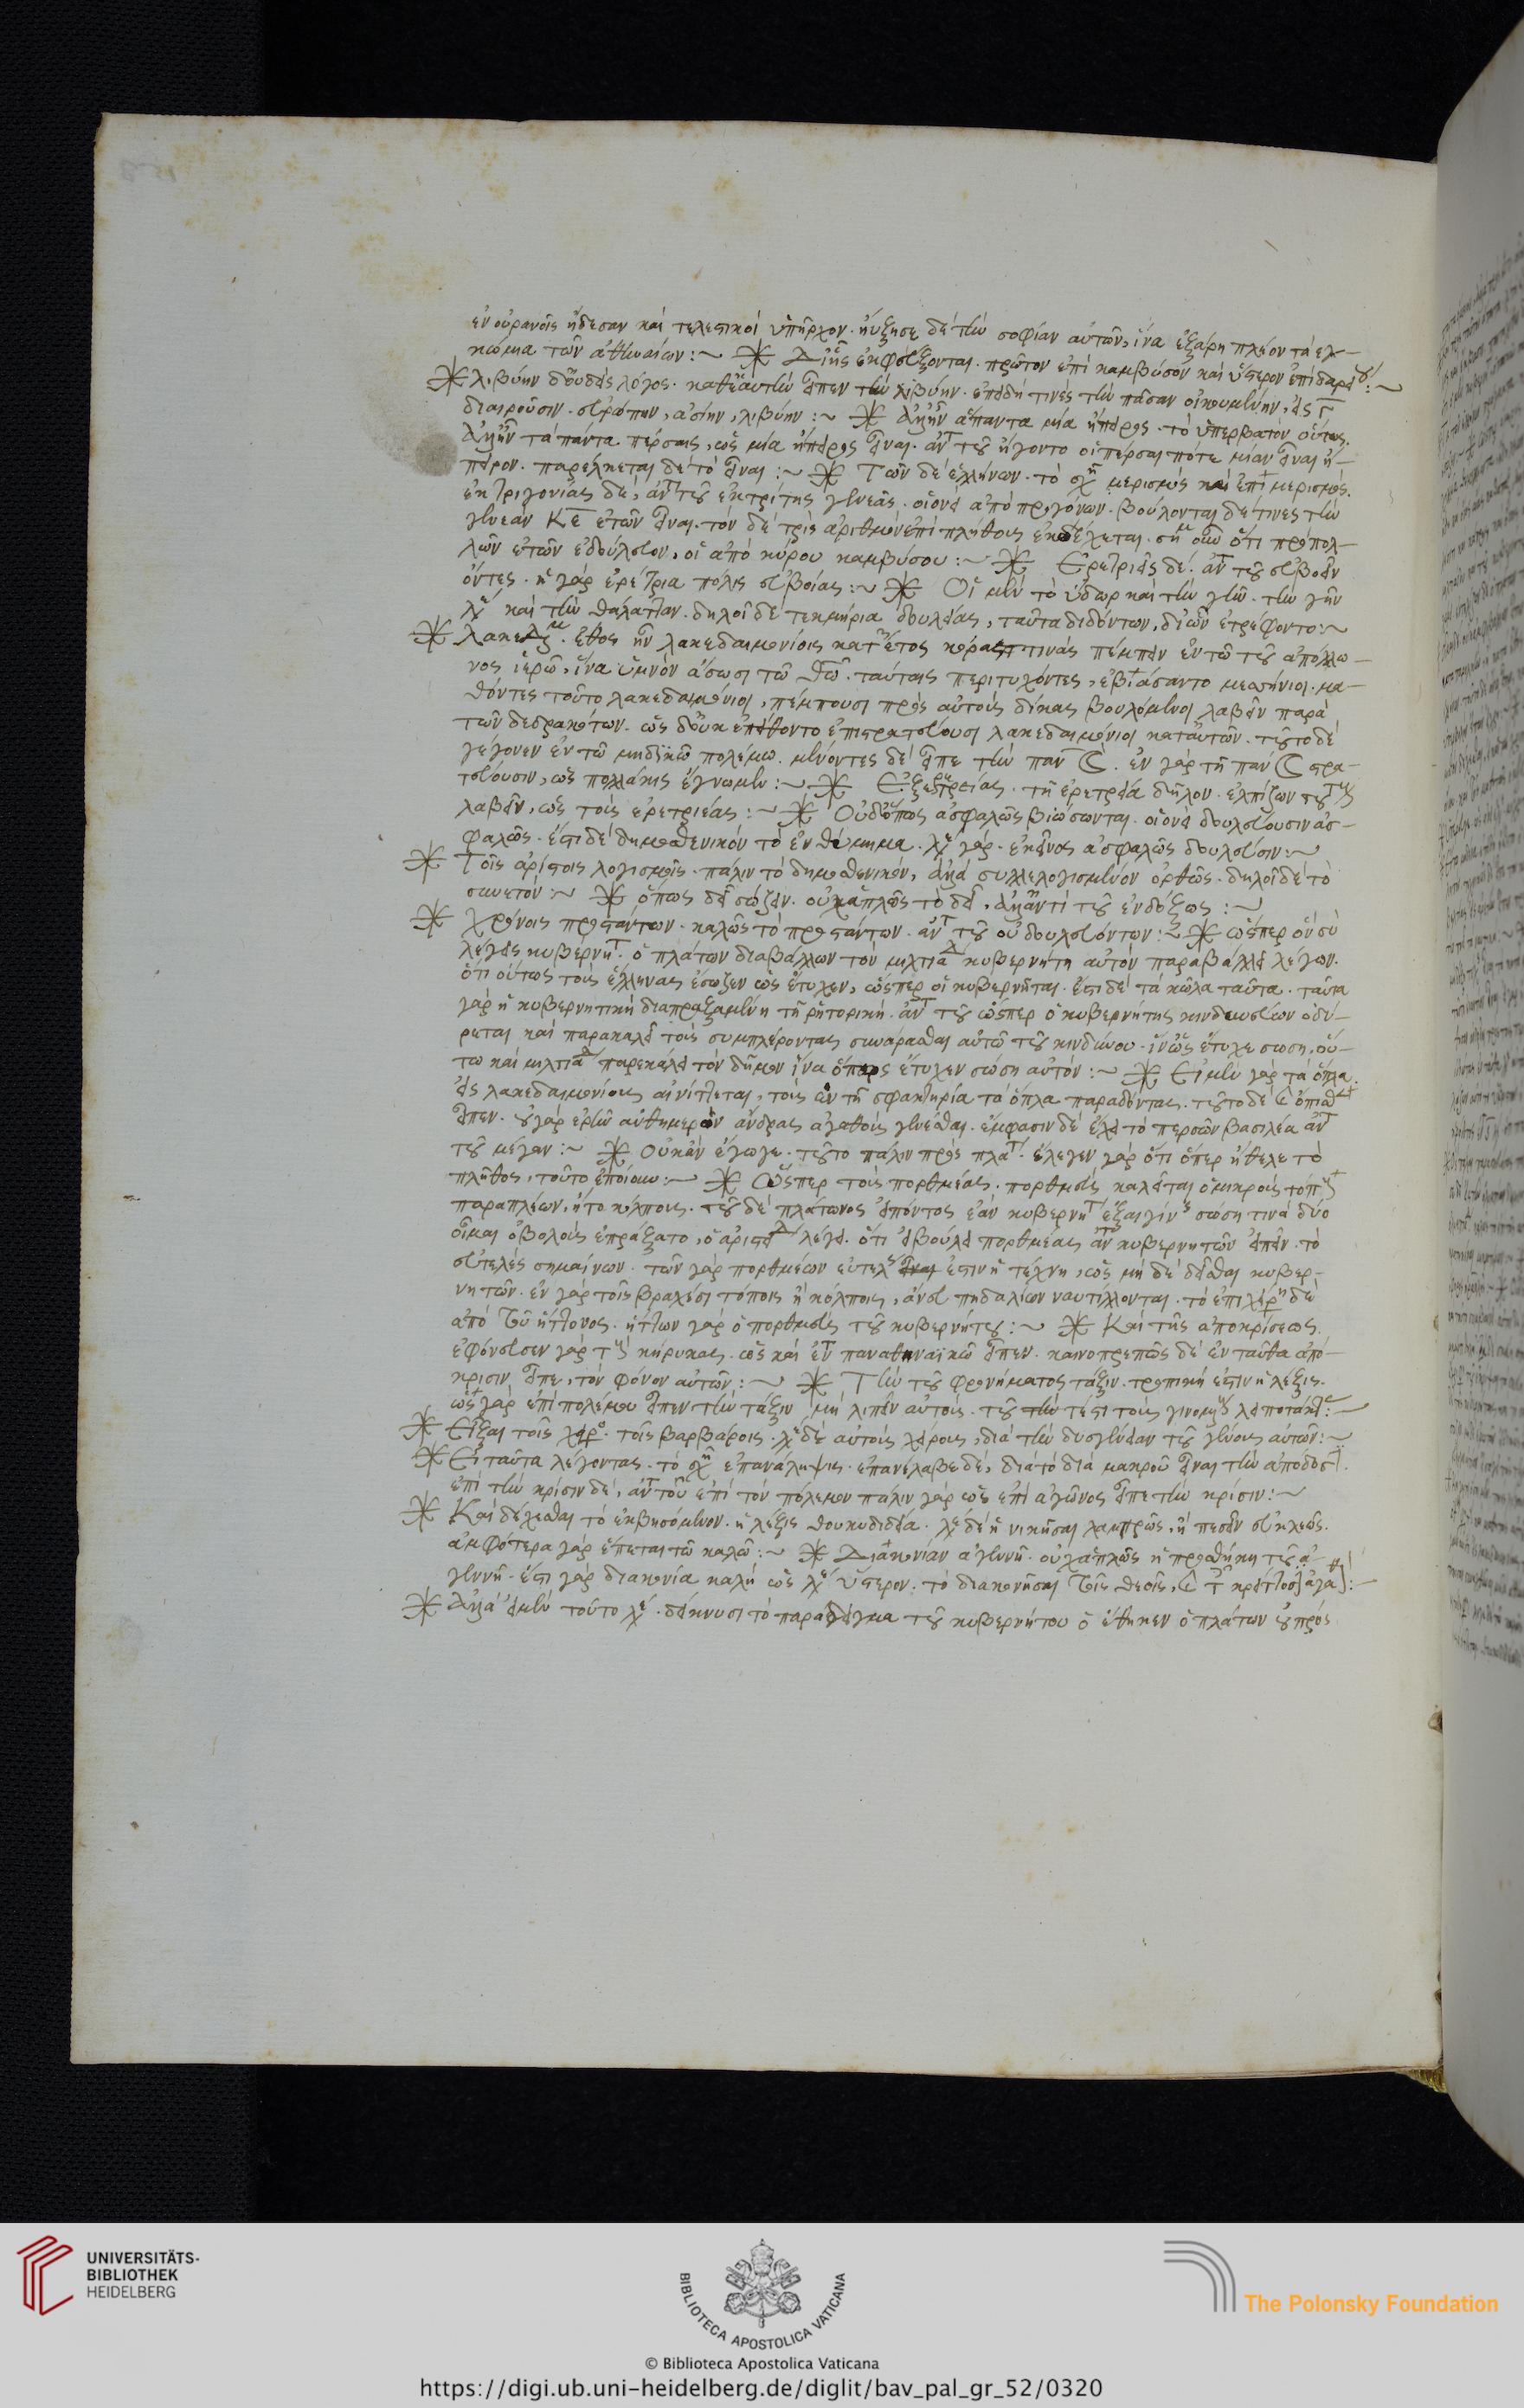 ἐν οὐρανοῖς ᾔδεσαν καὶ τελεστικοὶ ὑπῆρχον. ηὔξησε δὲ τὴν σοφίαν αὐτῶν, ἵνα ἐξάρῃ πλέον τὰ ἐγ-
κώμια τῶν ἀθηναίων :~ ※ Δι' ἧς ἐκφοβίζονται. πρῶτον ἐπὶ καμβύσου καὶ ὕστερον ἐπὶ δαρείου :~
※ λιβύην δ' οὐδεὶς λόγος. καθ' ἑαυτὴν εἶπεν τὴν λιβύην. ἐπειδή τινες τὴν πᾶσαν οἰκουμένην, εἰς γ
διαιροῦσιν. εὐρώπην, ἀσίην, λιβύην :~ ※ ἀλλ' ἦν ἅπαντα μία ἤπειρος. τὸ ὑπερβατὸν οὕτως.
ἀλλ' ἦν τὰ πάντα πέρσαις, ὡς μία ἤπειρος εἶναι. ἀντ τοῦ ἡγοῦντο οἱ πέρσαι ποτε μίαν εἶναι ἤ-
πειρον. παρέλκεται δὲ τὸ εἶναι :~ ※ Τῶν δὲ ἑλλήνων. τὸ σχῆ μερισμὸς καὶ ἐπιμερισμός.
ἐκ τριγονίας δὲ, ἀντ τοῦ ἐκ τρίτης γενεᾶς. οἱονεὶ ἀπὸ προγόνων. βούλονται δέ τινες τὴν
γενεὰν ΚΕ ἐτῶν εἶναι. τὸν δὲ τρὶς ἀριθμὸν ἐπὶ πλήθους ἐκδέχεται. ση οὖν ὅτι πρὸ πολ-
λῶν ἐτῶν ἐδούλευον, οἱ ἀπὸ κύρου καμβύσου :~ ※ Ἐρετριεῖς δέ. ἀντ τοῦ εὐβοεῖς
ὄντες. ἡ γὰρ ἐρέτρια πόλις εὐβοίας :~ ※ Οἱ μὲν τὸ ὕδωρ καὶ τὴν γῆν. τὴν γῆν
λέ καὶ τὴν θάλατταν. δηλοῖ δὲ τεκμήρια δουλείας, ταῦτα διδόντων, δι' ὧν ἐτρέφοντο :~
※ λακεδαιμ. ἔθος ἦν λακεδαιμονίοις κατ' ἔτος κόρας τινὰς πέμπειν ἐν τῷ τοῦ ἀπόλλω-
νος ἱερῷ, ἵνα ὕμνον ᾄσωσι τῷ θεῷ. ταύταις περιτυχόντες, ἐβιάσαντο μεσήνιοι. μα-
θόντες τοῦτο λακεδαιμόνιοι, πέμπουσι πρὸς αὐτοὺς δίκας βουλόμενοι λαβεῖν παρὰ
τῶν δεδρακότων. ὡς δ' οὐκ ἐπείθοντο ἐπιστρατεύουσι λακεδαιμόνιοι κατ' αὐτῶν. τοῦτο δὲ
γέγονεν ἐν τῷ μηδικῷ πολέμῳ. μένοντες δὲ εἶπε τὴν παν . ἐν γὰρ τῇ παν στρα-
τεύουσιν, ὡς πολλάκις ἔγνωμεν :~ ※ Ἐξ ἐρετρείας. τῇ ἐρετρείᾳ δῆλον. ἐλπίζων τούτους
λαβεῖν, ὡς τοὺς ἐρετριέας :~ ※ Οὐδ' ὅπως ἀσφαλῶς βιώσωνται. οἱονεὶ δουλεύουσιν ἀσ-
φαλῶς. ἔστι δὲ δημοσθενικὸν τὸ ἐνθύμημα. λέ γάρ. ἐκεῖνος ἀσφαλῶς δουλεύειν :~
※ Τοῖς ἀρίστοις λογισμοῖς. πάλιν τὸ δημοσθενικὸν, ἀλλὰ συλλελογισμένον ὀρθῶς. δηλοῖ δὲ τὸ
συνετόν :~ ※ ὅπως δεῖ σώζειν. οὐχ' ἁπλῶς τὸ δεῖ, ἀλλ' ἀντὶ τοῦ ἐνδόξως :~
※ χρόνοις προστάντων. καλῶς τὸ προστάντων. ἀντ τοῦ οὐ δουλευόντων :~ ※ ὥσπερ ὃν σὺ
λέγεις κυβερνήτ. ὁ πλάτων διαβάλλων τὸν μιλτιάδ κυβερνήτῃ αὐτὸν παραβάλλει λέγων.
ὅτι οὕτως τοὺς ἕλληνας ἔσωζεν ὡς ἔτυχεν, ὥσπερ οἱ κυβερνῆται. ἔστι δὲ τὰ κῶλα ταῦτα. ταῦτα
γὰρ ἡ κυβερνητικὴ διαπραξαμένη τῇ ῥητορικῇ. ἀντ τοῦ ὥσπερ ὁ κυβερνήτης κινδυνεύων ὀδύ-
ρεται καὶ παρακαλεῖ τοὺς συμπλέοντας συνάρασθαι αὐτῷ τοῦ κινδύνου. ἵν' ὡς ἔτυχε σώσῃ, οὕ-
τω καὶ μιλτιάδ παρεκάλει τὸν δῆμον ἵνα ὅπως ἔτυχεν σώσῃ αὐτόν :~ ※ Εἰ μὲν γὰρ τὰ ὅπλα.
εἰς λακεδαιμονίους αἰνίττεται, τοὺς ἐν τῇ σφακτηρίᾳ τὰ ὅπλα παραδόντας. τοῦτο δὲ καὶ ὄπισθεν
εἶπεν. οὐ γὰρ ἐρεῖν αὐθημερὸν ἄνδρας ἀγαθοὺς γενέσθαι. ἔμφασιν δὲ ἔχει τὸ περσῶν βασιλέα ἀντ
τοῦ μέγαν :~ ※ Οὐκ ἂν ἔγωγε. τοῦτο πάλιν πρὸς πλάτ. ἔλεγεν γὰρ ὅτι ὅπερ ἤθελε τὸ
πλῆθος, τοῦτο ἐποίουν :~ ※ Ὥσπερ τοὺς πορθμέας. πορθμεὺς καλεῖται ὁ μικροὺς τόπους
παραπλέων, ἤτοι κόλπους. τοῦ δὲ πλάτωνος εἰπόντος ἐὰν κυβερνήτ ἐξ αἰγίνης σώσῃ τινὰ δύο
οἶμαι ὀβολοὺς ἐπράξατο, ὁ ἀριστείδ λέγει. ὅτι ἐβούλει πορθμέας ἀντ κυβερνητῶν εἰπεῖν. τὸ
εὐτελὲς σημαίνων. τῶν γὰρ πορθμέων εὐτελής ἐστιν ἡ τέχνη, ὡς μὴ δὲ δεῖσθαι κυβερ-
νητῶν. ἐν γὰρ τοῖς βραχέσι τόποις ἢ κόλποις, ἄνευ πηδαλίων ναυτίλλονται. τὸ ἐπιχείρη δὲ
ἀπὸ τοῦ ἥττονος. ἥττων γὰρ ὁ πορθμεὺς τοῦ κυβερνήτου :~ ※ Καὶ τῆς ἀποκρίσεως.
ἐφόνευσεν γὰρ τοὺς κήρυκας. ὡς καὶ ἐν τ παναθηναϊκῷ εἶπεν. καινοπρεπῶς δὲ ἐνταῦθα ἀπό-
κρισιν εἶπε, τὸν φόνον αὐτῶν :~ ※ Τὴν τοῦ φρονήματος τάξιν. τροπική ἐστιν ἡ λέξις.
ὡς γὰρ ἐπὶ πολέμου εἶπεν τὴν τάξιν μὴ λιπεῖν αὐτούς. τοῦτέστι τοὺς γινομένους λειποτάκτ :~
※ Εἶξαι τοῖς χείρο. τοῖς βαρβάροις. λέ δὲ αὐτοὺς χείρους, διὰ τὴν δυσγένειαν τοῦ γένους αὐτῶν :~
※ Εἰ ταῦτα λέγοντας. τὸ σχῆ ἐπανάληψις. ἐπανέλαβε δὲ, διὰ τὸ διὰ μακροῦ εἶναι τὴν ἀπόδοσ.
ἐπὶ τὴν κρίσιν δὲ, ἀντ τοῦ ἐπὶ τὸν πόλεμον πάλιν γὰρ ὡς ἐπὶ ἀγῶνος εἶπε τὴν κρίσιν :~
※ Καὶ δέχεσθαι τὸ ἐκβησόμενον. ἡ λέξις θουκυδιδεία. λέ δὲ ἢ νικῆσαι λαμπρῶς, ἢ πεσεῖν εὐκλεῶς.
ἀμφότερα γὰρ ἕπεται τῷ καλῷ :~ ※ Διακονίαν ἀγεννῆ. οὐχ ἁπλῶς ἡ προσθήκη τοῦ ἀ-
γεννῆ. ἔστι γὰρ διακονία καλὴ ὡς λέ ὕστερον. τὸ διακονῆσαι τοῖς θεοῖς, καὶ τ κρείττοσι :~
※ Ἀλλὰ εἰ μὲν τοῦτο λέ. δείκνυσι τὸ παράδειγμα τοῦ κυβερνήτου ὃ ἔθηκεν ὁ πλάτων οὐ πρὸς
UNIVERSITÄTS-
BIBLIOTHEK
HEIDELBERG
BIBLIOTECA APOSTOLICA VATICANA
The Polonsky Foundation
© Biblioteca Apostolica Vaticana
https://digi.ub.uni-heidelberg.de/diglit/bav_pal_gr_52/0320